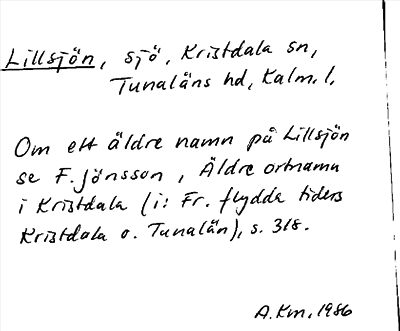 Lillsjön, sjö, Kristdala sn,
Tunaläns hd, Kalm. l.
Om ett äldre namn på Lillsjön
se F. Jönsson, Äldre ortnamn
i Kristdala (i: Fr. flydda tiders
Kristdala o. Tunalän), s. 318.
A.Km. 1986